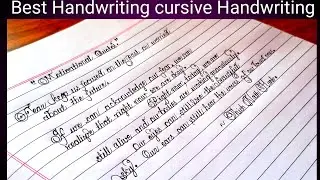 Best Handwriting cursive Handwriting
"Motivational Quotes"
Fear keep us focused on the past or worried
about the future.
If we can acknowledge our fear, we can
realize that right now we are okay.
Right now, today, we are
still alive and our bodies are working marvelously.
Our eyes can still see the beautiful
sky.
Our ears can still hear the voices of our loved ones.